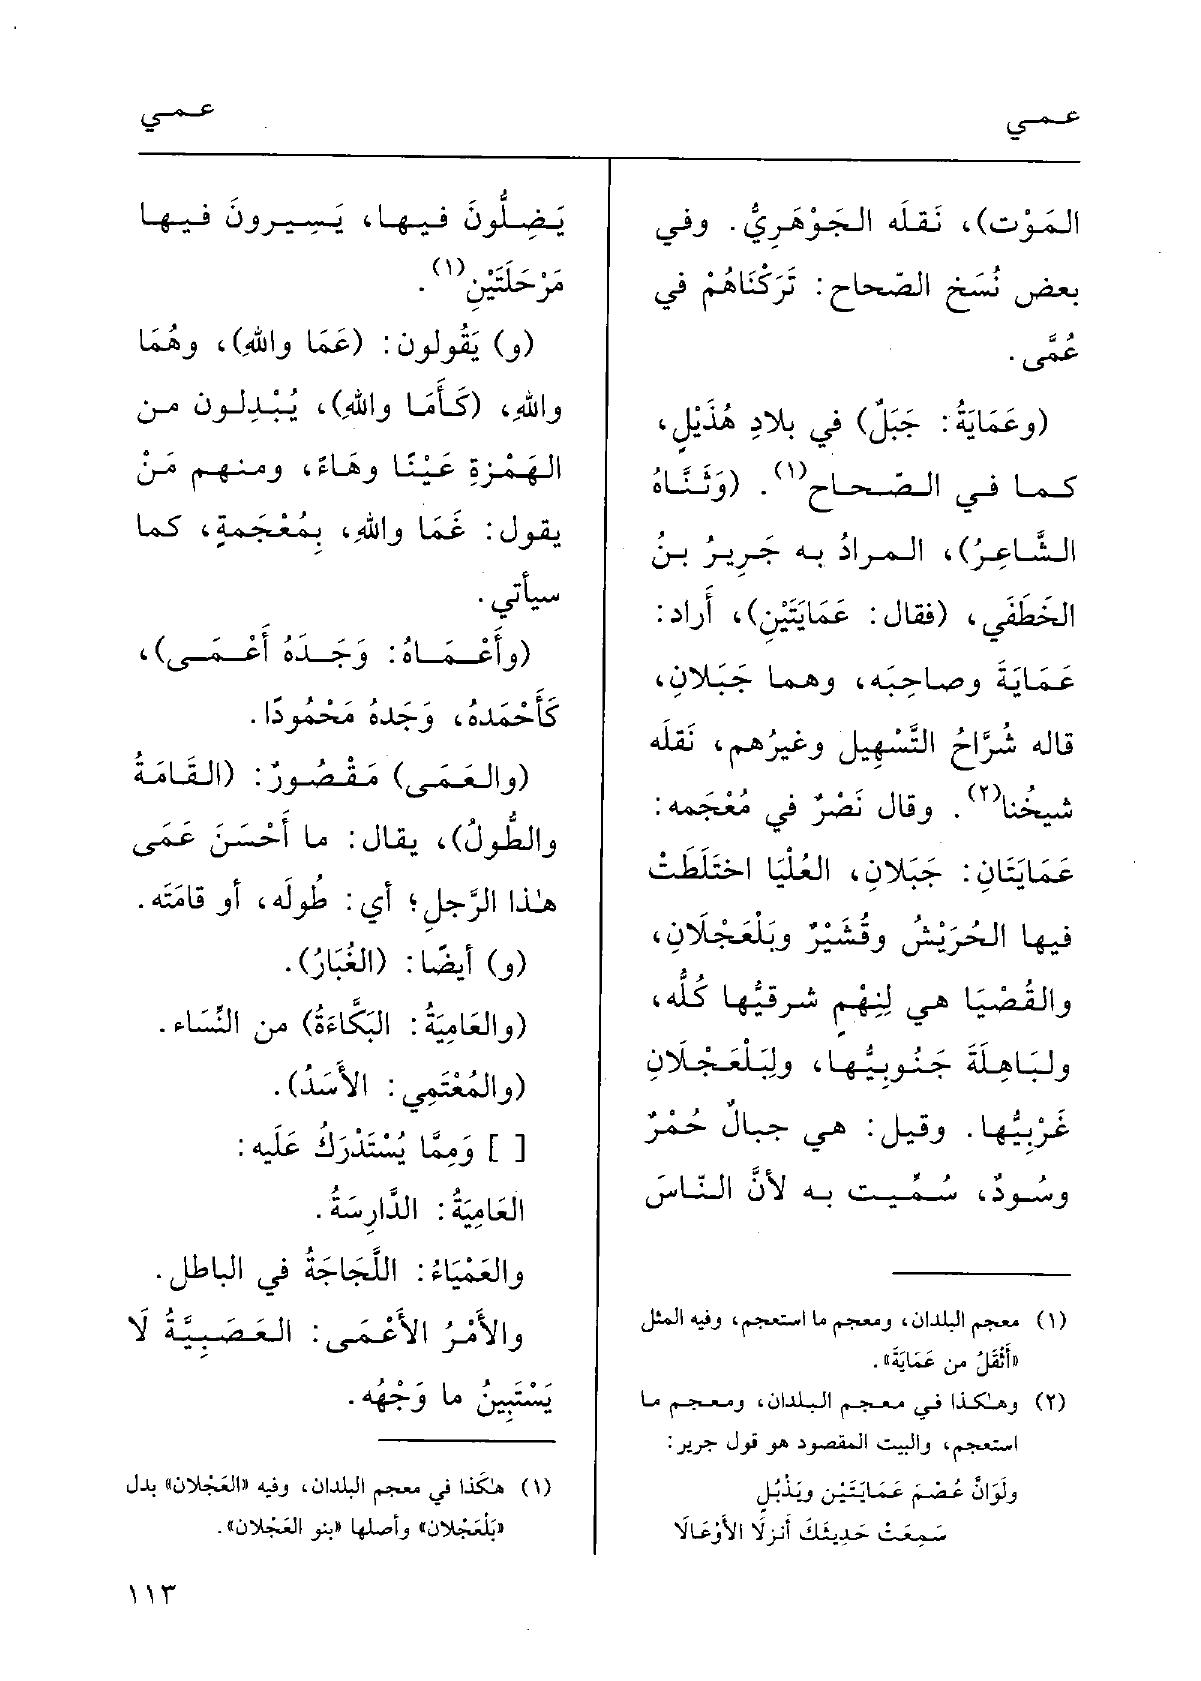 عمي
عمي
المَوْت)، نَقلَه الجَوْهَرِيُّ. وفي
بعض نُسَخ الصّحاح: تَرَكْنَاهُمْ في
عُمَّى.
(وعَمَايَةُ: جَبَلٌ) في بلادِ هُذَيْلٍ،
كما في الصّحاح(١). (وَثَنَّاهُ
الشَّاعِرُ)، المرادُ به جَرِيرُ بنُ
الخَطَفَي، (فقال: عَمَايَتَيْنِ)، أَراد:
عَمَايَةَ وصاحِبَه، وهما جَبَلانِ،
قاله شُرَّاحُ التَّسْهِيل وغيرُهم، نَقلَه
شيخُنا(٢). وقال نَصْرٌ في مُعْجَمه:
عَمَايَتَانِ: جَبَلانِ، العُلْيَا اختَلَطَتْ
فيها الحُرَيْشُ وقُشَيْرٌ وبَلْعَجْلَانِ،
والقُصْيَا هي لِنِهْمٍ شرقيُّها كُلُّه،
ولبَاهِلَةَ جَنُوبِيُّها، ولِبَلْعَجْلَانِ
غَرْبِيُّها. وقيل: هي جبالٌ حُمْرٌ
وسُودٌ، سُمِّيت به لأنَّ النّاسَ
(١) معجم البلدان، ومعجم ما استعجم، وفيه المثل
«أَثْقَلُ من عَمَايَةَ».
(٢) وهكذا في معجم البلدان، ومعجم ما
استعجم، والبيت المقصود هو قول جرير:
ولَوَانَّ عُصْمَ عَمَايَتَيْنِ ويَذْبُلٍ
سَمِعَتْ حَدِيثَكَ أَنزلَا الأَوْعَالَا
يَضِلُّونَ فيها، يَسِيرونَ فيها
مَرْحَلَتَيْنِ(١).
(و) يَقُولون: (عَمَا واللهِ)، وهُمَا
واللهِ، (كَأَمَا واللهِ)، يُبْدِلون من
الهَمْزةِ عَيْنًا وهَاءً، ومنهم مَنْ
يقول: غَمَا واللهِ، بِمُعْجَمةٍ، كما
سيأتي.
(وأَعْمَاهُ: وَجَدَهُ أَعْمَى)،
كَأَحْمَدهُ، وَجَدهُ مَحْمُودًا.
(والعَمَى) مَقْصُورٌ: (القَامَةُ
والطُّولُ)، يقال: ما أَحْسَنَ عَمَى
هٰذا الرَّجلِ؛ أي: طُولَه، أو قامَتَه.
(و) أيضًا: (الغُبَارُ).
(والعَامِيَةُ: البَكَّاءَةُ) من النِّسَاء.
(والمُعْتَمِي: الأَسَدُ).
[ ] وَمِمَّا يُسْتَدْرَكُ عَلَيه:
العَامِيَةُ: الدَّارِسَةُ.
والعَمْيَاءُ: اللَّجَاجَةُ في الباطل.
والأَمْرُ الأَعْمَى: العَصَبِيَّةُ لَا
يَسْتَبِينُ ما وَجْهُه.
(١) هٰكَذا في معجم البلدان، وفيه «العَجْلان» بدل
«بَلْعَجْلان» وأصلها «بنو العَجْلان».
١١٣